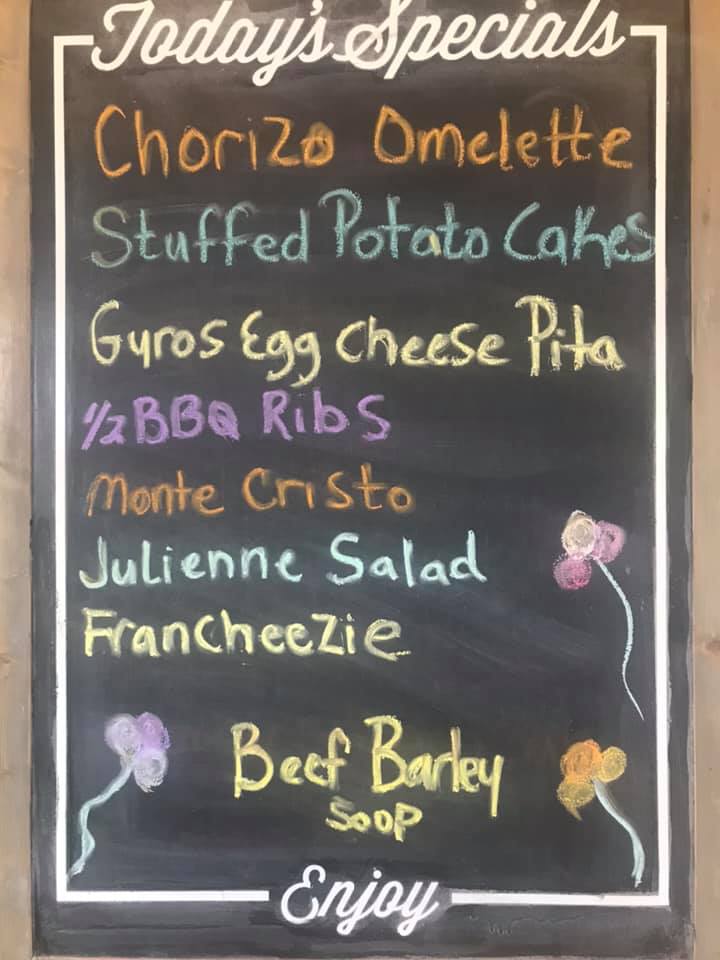 Today's Specials
Chorizo Omelette
Stuffed Potato Cakes
Gyros Egg Cheese Pita
1/2 BBQ Ribs
Monte Cristo
Julienne Salad
Francheezie
Beef Barley
Soop
Enjoy